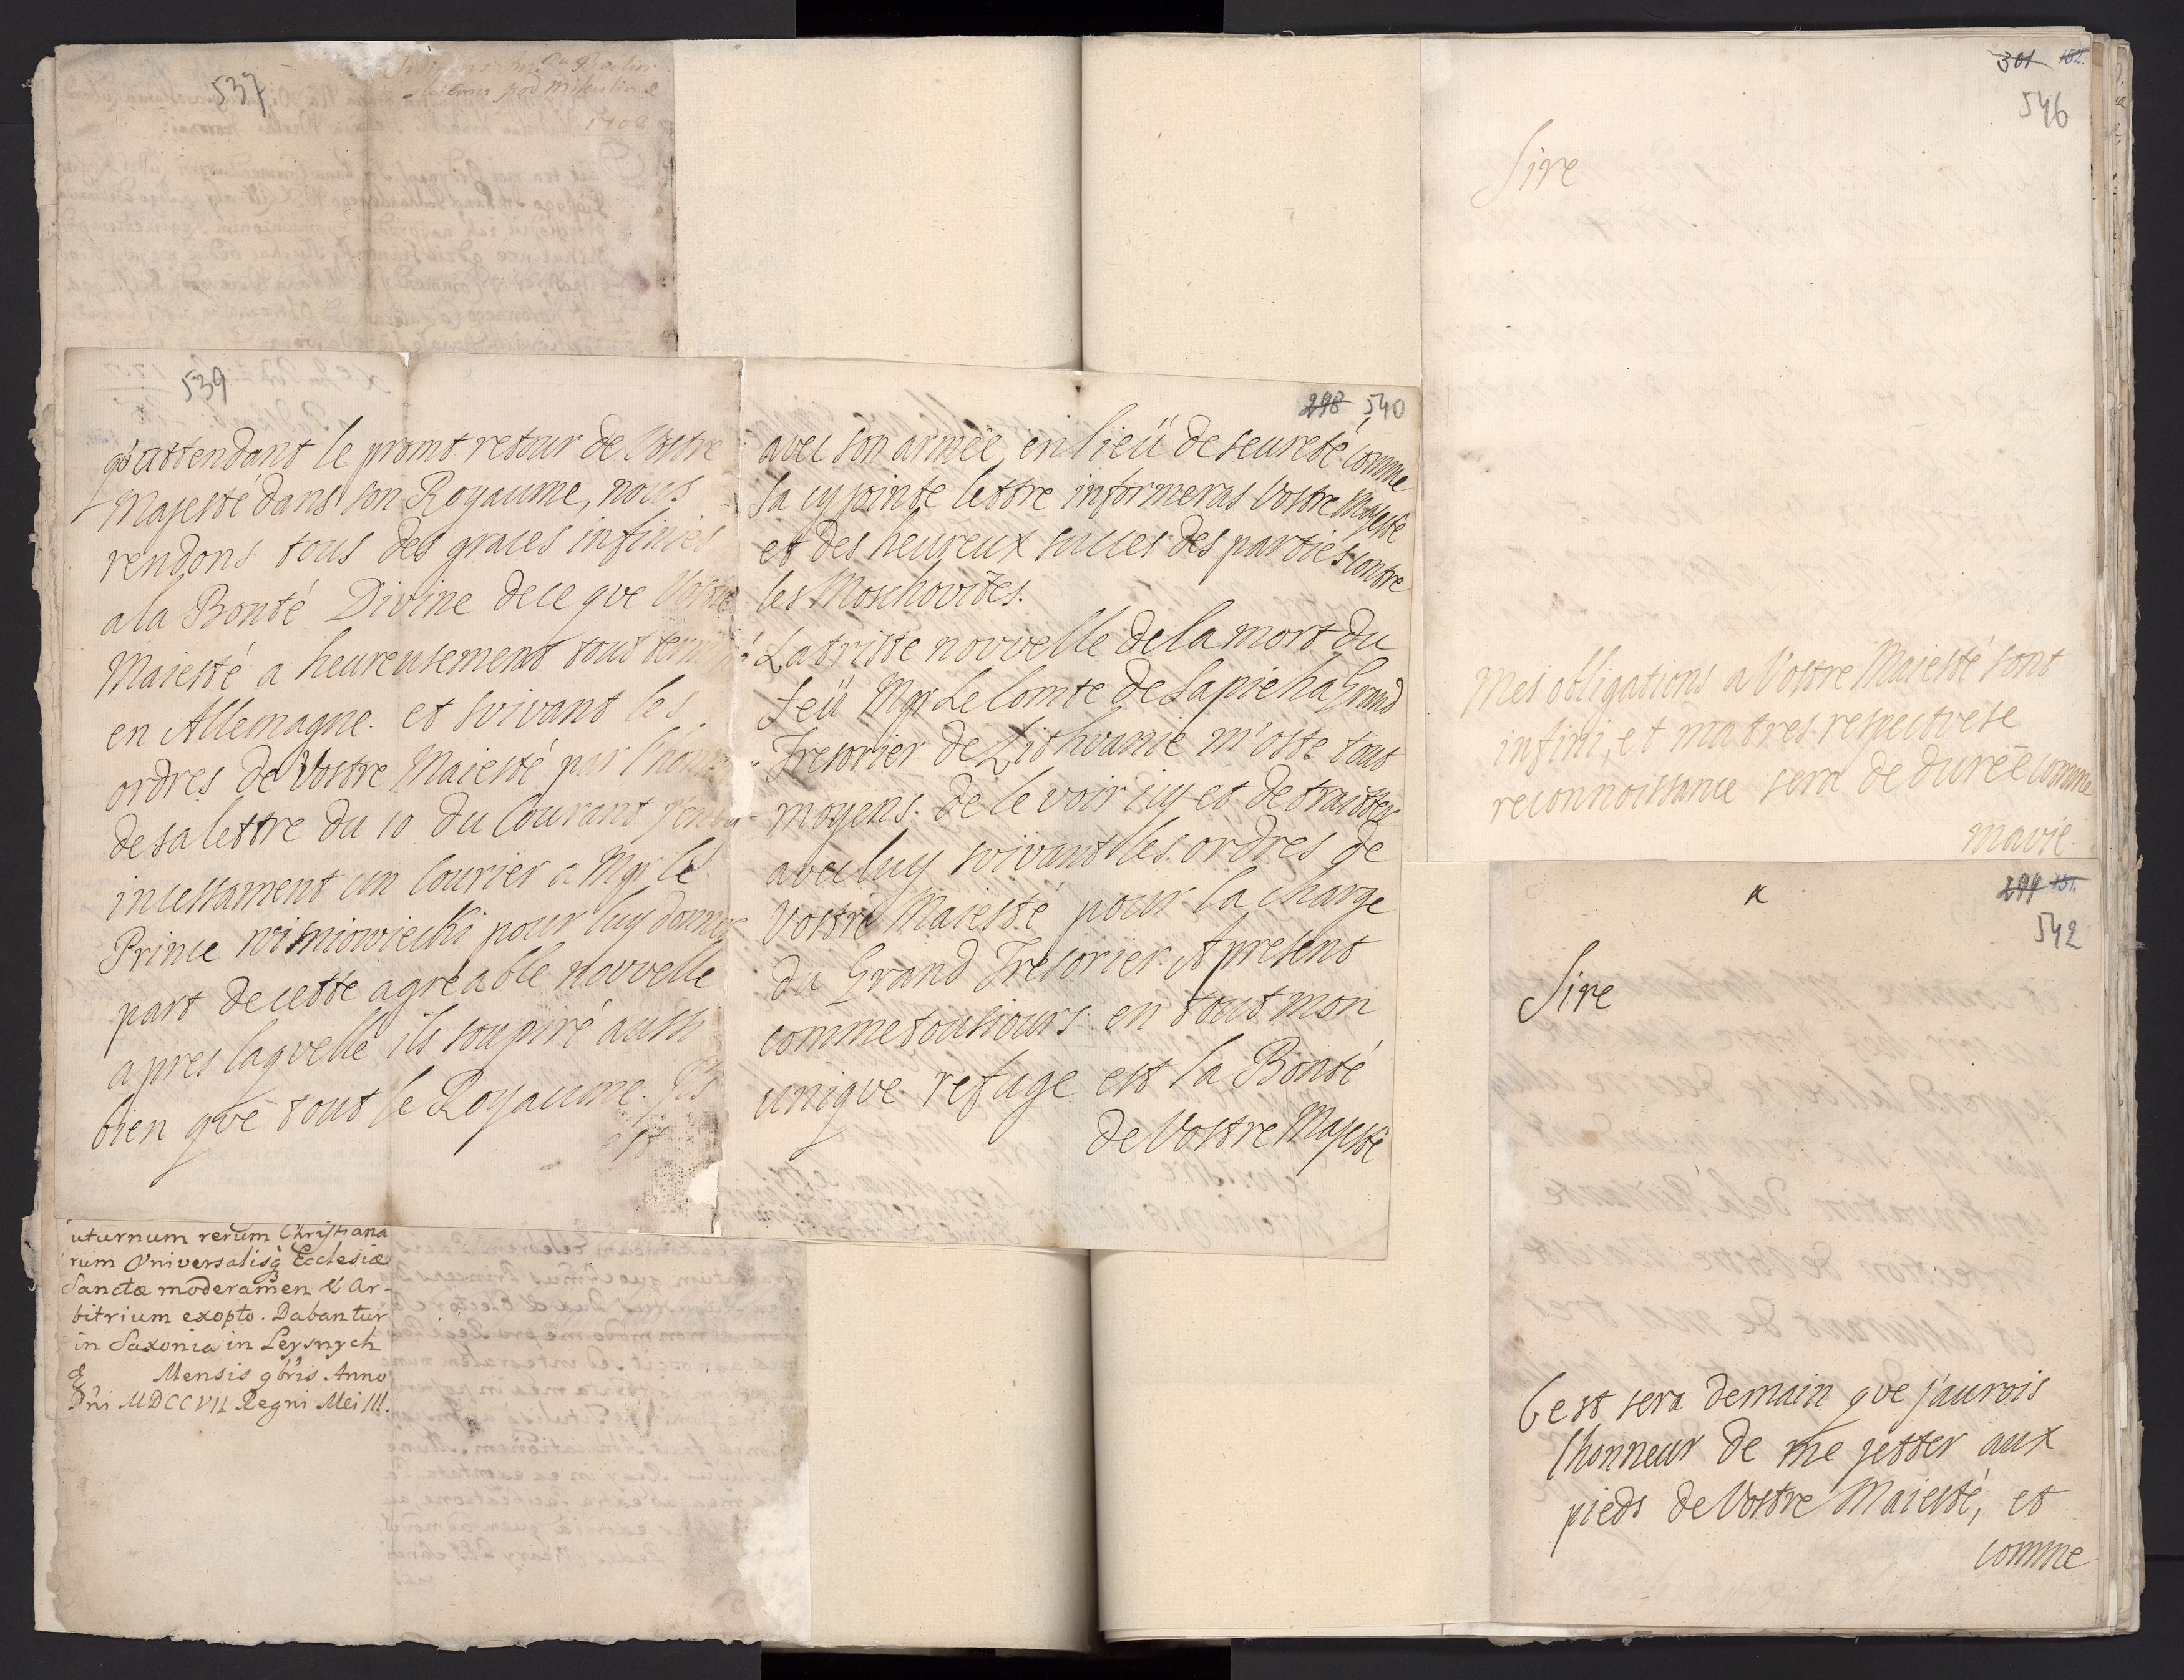 537
pod Mikulin
1702
539
qu'attendant le promt retour de Vostre
Majesté dans son Royaume, nous
rendons tous des graces infinies
a la Bonté Divine de ce que Vostre
Maiesté a heureusement tout
en Allemagne. et suivant les
ordres de Vostre Maiesté par
de sa lettre du 10 du Courant
incessament un Courier a Mgr le
Prince Wisniowiecki pour luy donner
part de cette agreable novvelle
apres laqvelle ils soupiré aussi
bien qve tout le Royaume. Ils
est
298 540
avec son armëe, en lieü de seureté, comme
sa cy jointe lettre informeras Vostre Majesté
et des heureux succes des parties contre
les Moschovites.
La triste novvelle de la mort du
Feü Mgr Le Comte de Sapieha Grand
Tresorier de Lithvanie m'oste tout
moyens. de le voir icy et de traitter
avec luy svivant les ordres de
Vostre Maiesté pour la charge
du Grand Tresorier. A present
comme tousiours en tout mon
unique refuge est la Bonté
de Vostre Majesté
uturnum rerum Christiana
rum Universalisq Ecclesiæ
Sanctæ moderamen & Ar-
bitrium exopto. Dabantur
in Saxonia in Leysnych
d Mensis 9bris Anno
Dni MDCCVII Regni Mei III.
301 152.
546
Sire
Mes obligations a Vostre Maiesté sont
infini, et ma tres respectvese
reconnoissance sera de durëe comme
ma vie.
299 151.
542
Sire
C'est sera demain qve j'aurois
l'honneur de me jetter aux
pieds de Vostre Maiesté, et
comme